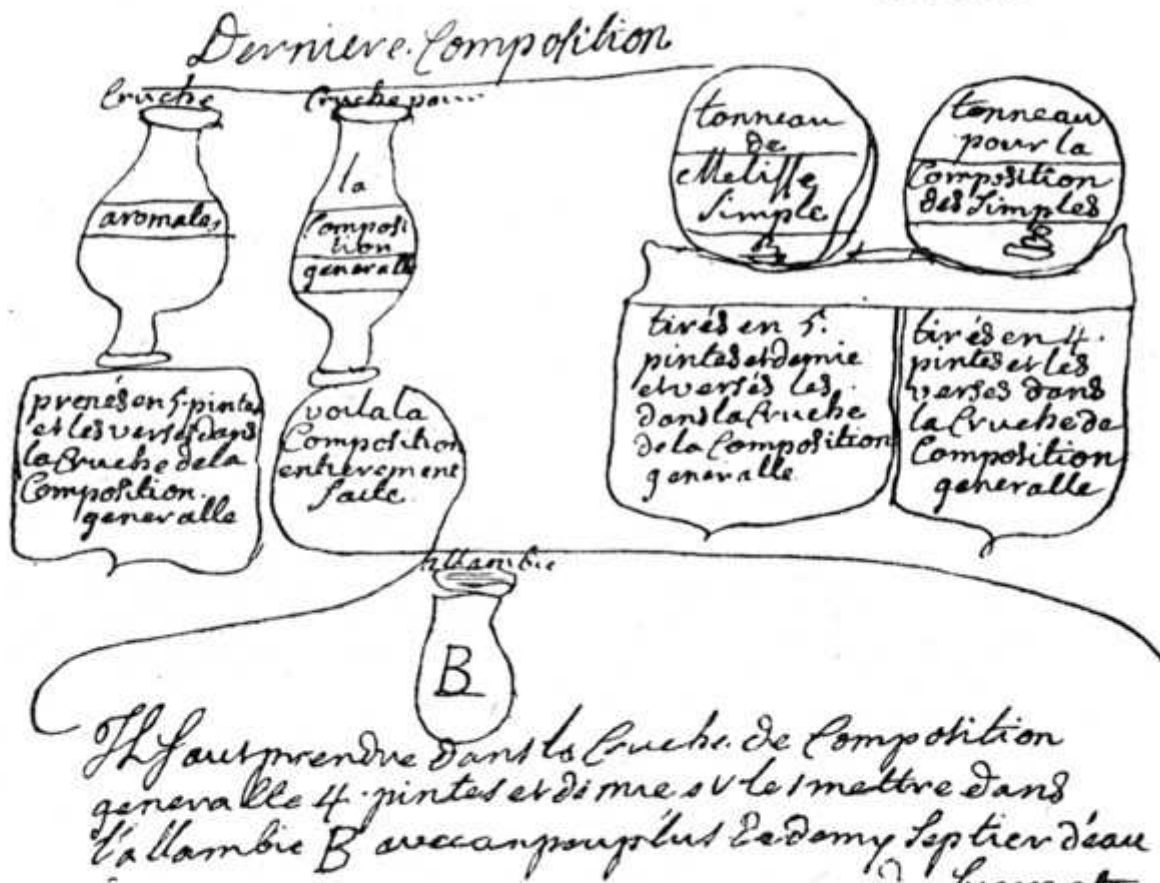 Derniere Composition
Cruche
aromates
prenés en 5 pintes
et les versés dans
la Cruche de la
Composition
generalle
Cruche pour
la
Composi
tion
generalle
voila la
Composition
entierement
faite
tonneau
de
Melisse
simple
tirés en 5.
pintes et demie
et versés les
dans la Cruche
de la Composition
generalle
tonneau
pour la
Composition
des simples
tirés en 4.
pintes et les
versés dans
la Cruche de
Composition
generalle
allambic
B
Il faut prendre dans la Cruche de Composition
generalle 4 pintes et demie et les mettre dans
l'allambic B avec un peu plus de demy septier d'eau